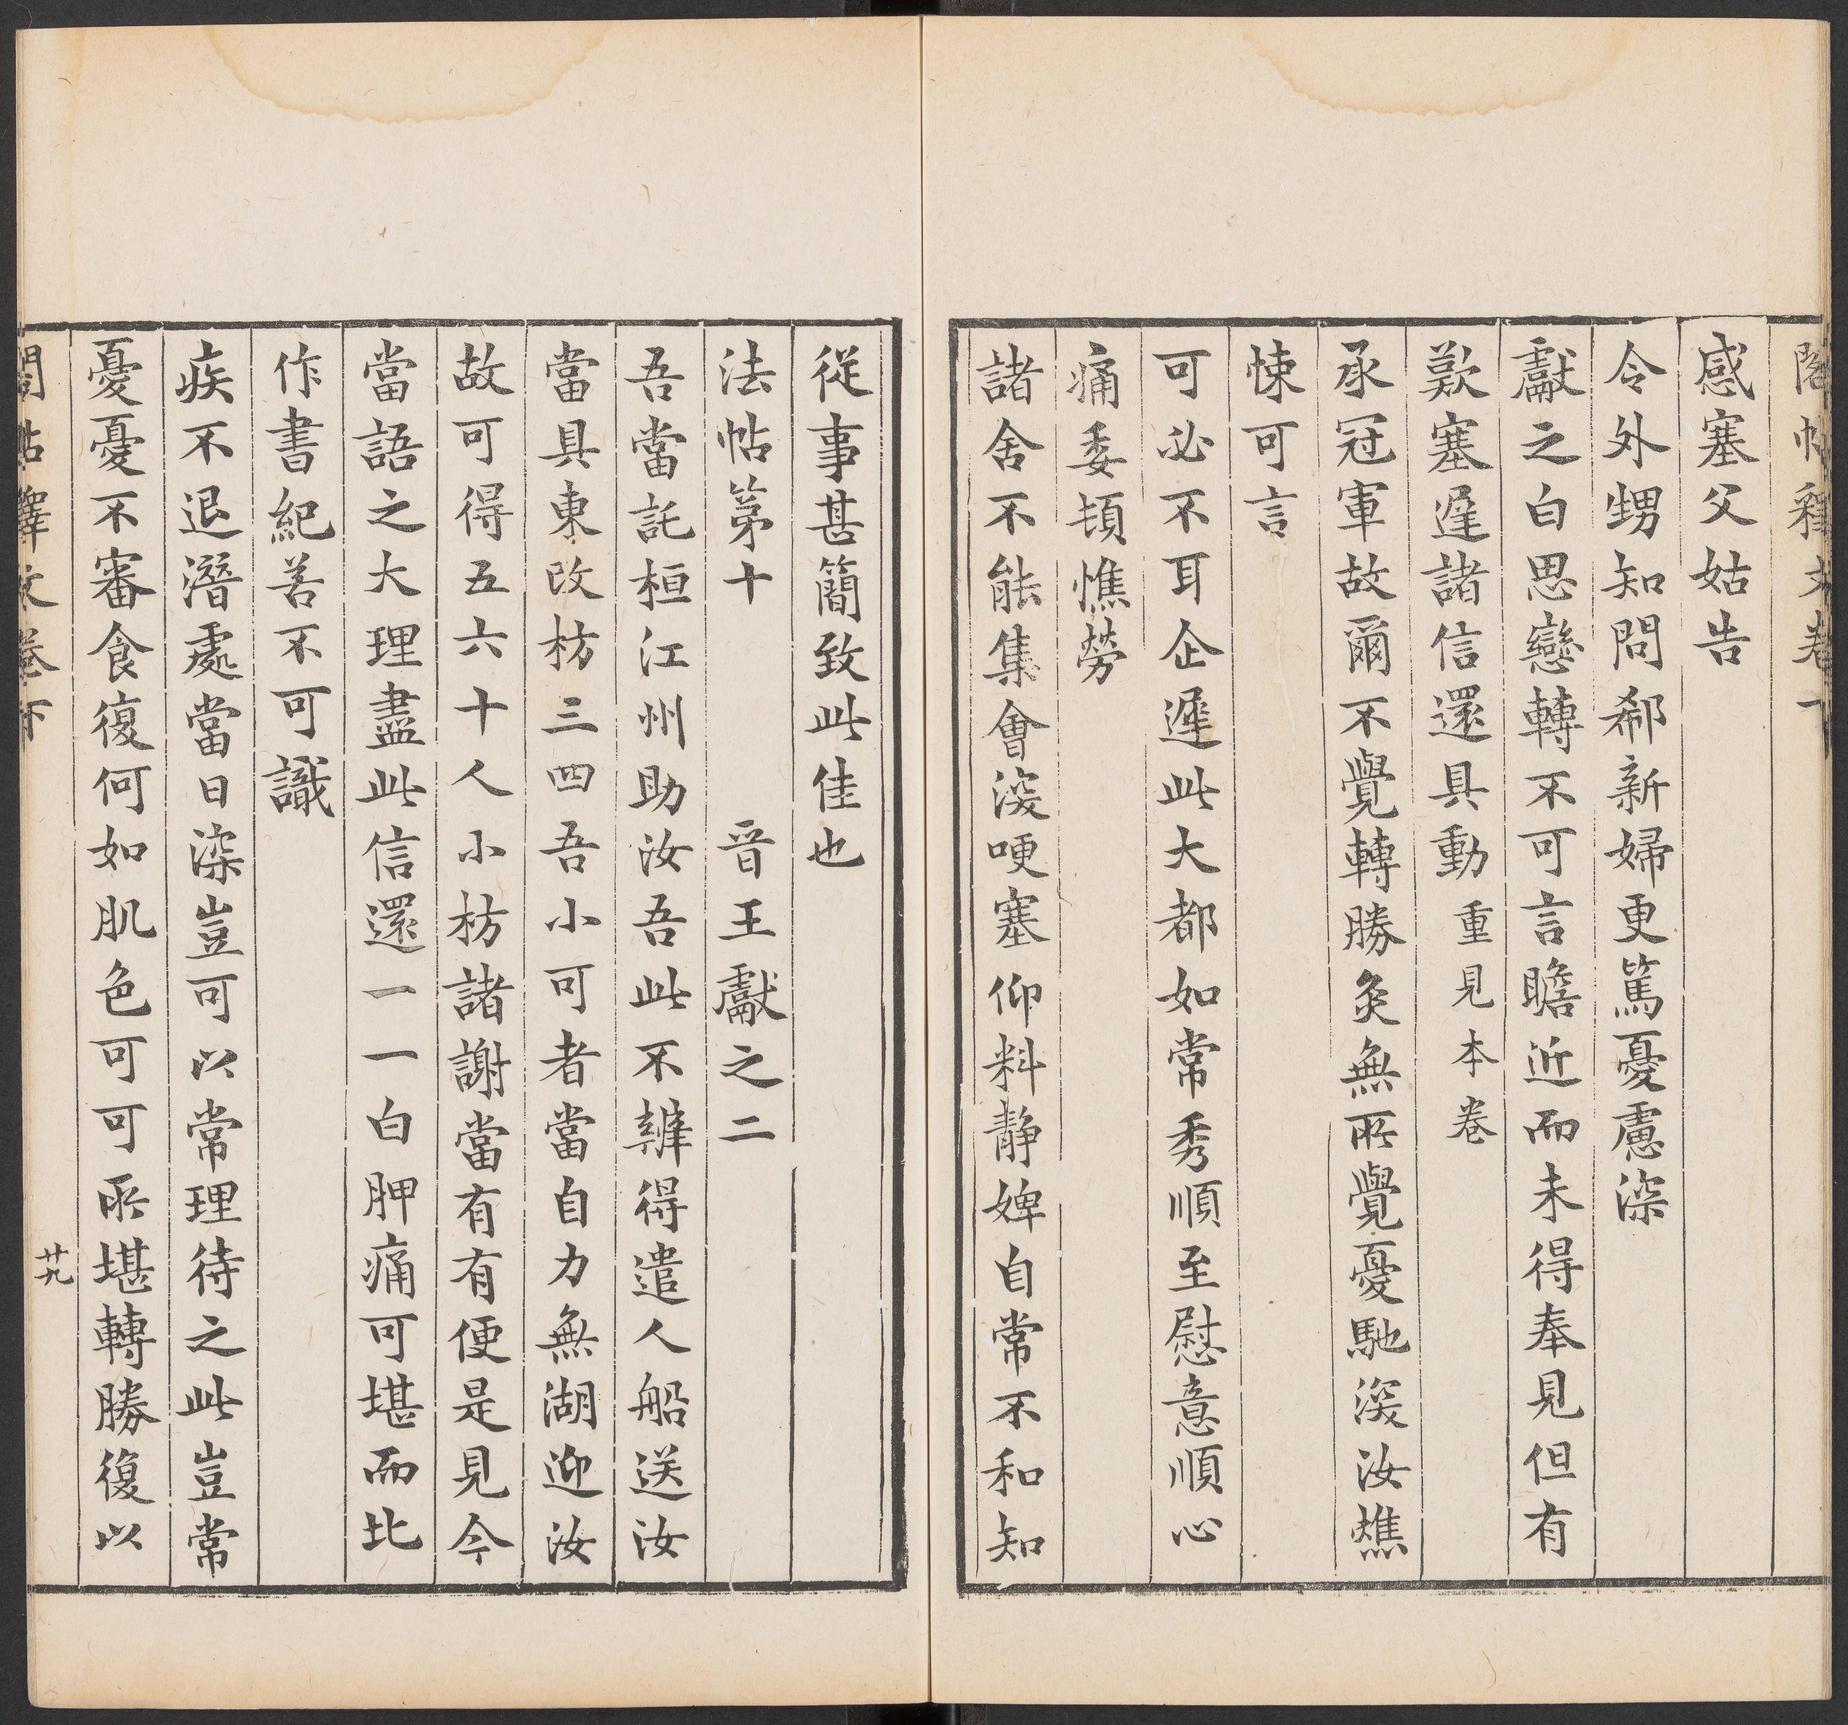 閣帖釋文卷下
感塞父姑告
令外甥知問郗新婦更篤憂慮深
獻之白思戀轉不可言瞻近而未得奉見但有
歎塞遲諸信還具動 重見本卷
承冠軍故爾不覺轉勝灸無所覺憂馳深汝燋
悚可言
可必不耳企遲此大都如常秀順至慰意順心
痛委頓憔勞
諸舍不能集會深哽塞仰料静婢自常不和知
從事甚簡致此佳也
法帖第十 晉王獻之二
吾當託桓江州助汝吾此不辦得遣人船送汝
當具東改枋三四吾小可者當自力無湖迎汝
故可得五六十人小枋諸謝當有有便是見今
當語之大理盡此信還一一白胛痛可堪而比
作書紀善不可識
疾不退潛處當日深豈可以常理待之此豈常
憂憂不審食復何如肌色可可所堪轉勝復以
閣帖釋文卷下
廿九